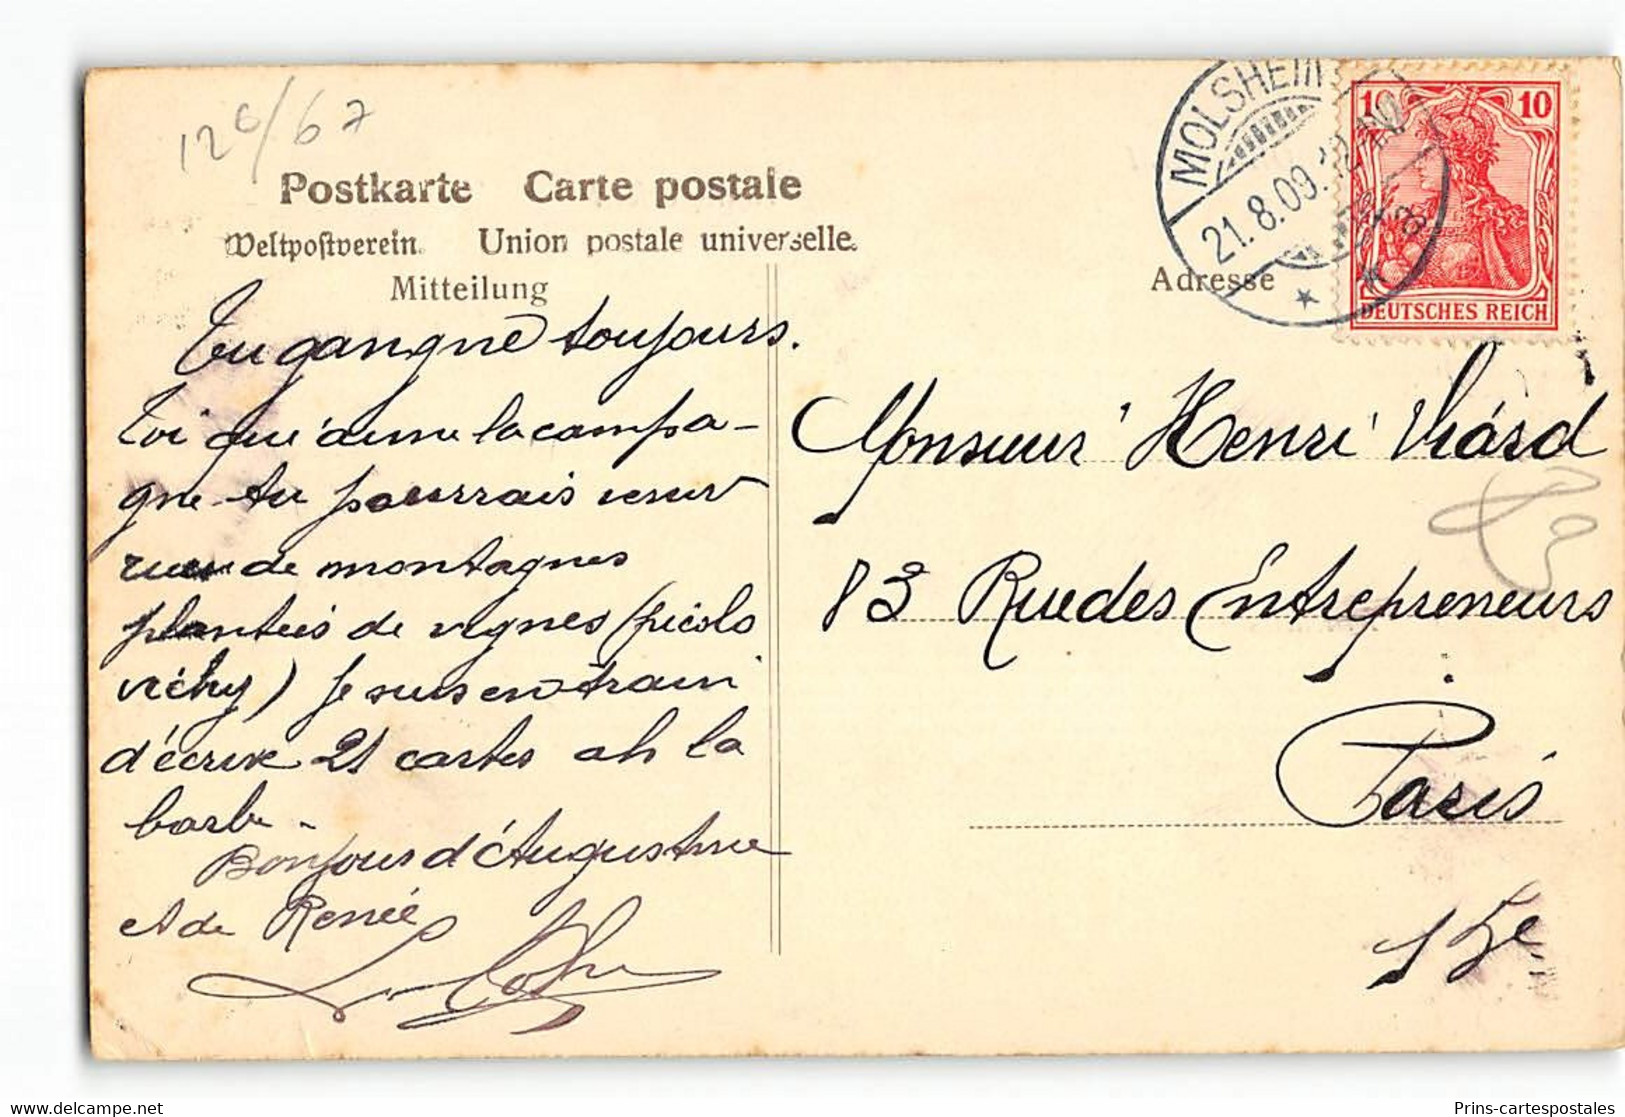 120/67
Postkarte Carte postale
Weltpostverein. Union postale universelle.
Mitteilung
Tu gangne toujours.
Toi qui aime la campa-
gne tu pourrais venir
de montagnes
plantées de vignes (picolo
vichy) je suis en train
d'écrire 21 cartes ah la
barbe -
Bonjour d'Augustine
et de Renée
MOLSHEIM
21.8.09.
10 10
DEUTSCHES REICH
Adresse
Monsieur Henri Viard
83 Rue des Entrepreneurs
Paris
15e
delcampe.net
Prins-cartespostales